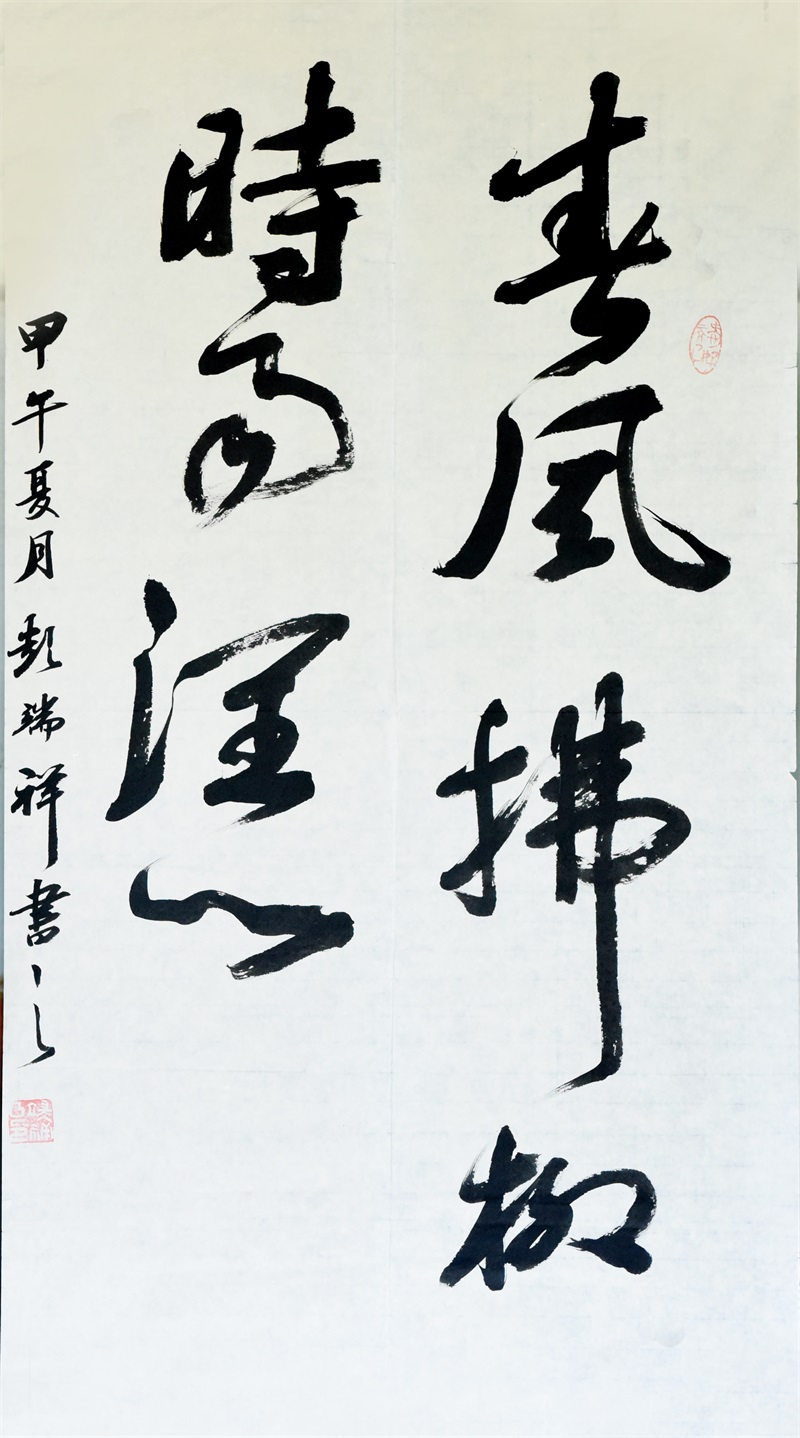 春風拂柳
時雨潤心
甲午夏月彭瑞祥書之